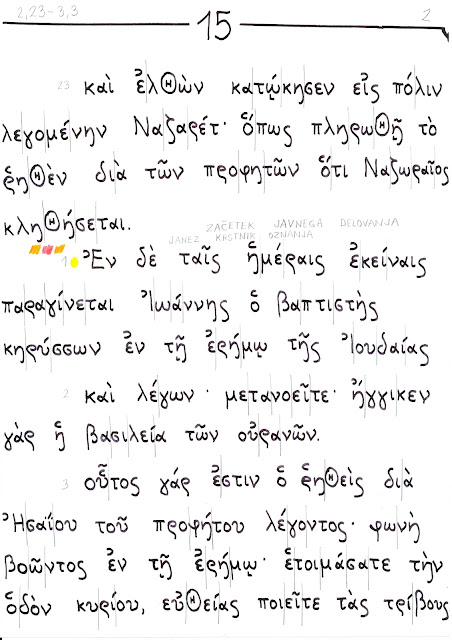 2,23-3,3
15
2
23 καὶ ἐλθὼν κατῴκησεν εἰς πόλιν
λεγομένην Ναζαρέτ· ὅπως πληρωθῇ τὸ
ῥηθὲν διὰ τῶν προφητῶν ὅτι Ναζωραῖος
κληθήσεται.
ZAČETEK JAVNEGA DELOVANJA
JANEZ KRSTNIK OZNANJA
1 Ἐν δὲ ταῖς ἡμέραις ἐκείναις
παραγίνεται Ἰωάννης ὁ βαπτιστὴς
κηρύσσων ἐν τῇ ἐρήμῳ τῆς Ἰουδαίας
2 καὶ λέγων· μετανοεῖτε· ἤγγικεν
γὰρ ἡ βασιλεία τῶν οὐρανῶν.
3 οὗτος γάρ ἐστιν ὁ ῥηθεὶς διὰ
Ἠσαΐου τοῦ προφήτου λέγοντος· φωνὴ
βοῶντος ἐν τῇ ἐρήμῳ· ἑτοιμάσατε τὴν
ὁδὸν κυρίου, εὐθείας ποιεῖτε τὰς τρίβους